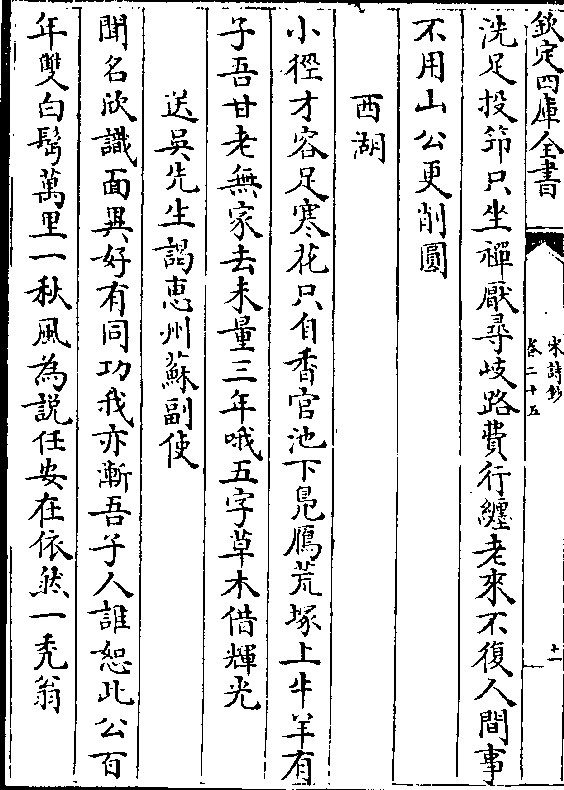 欽定四庫全書
宋詩鈔
卷二十五
十一
洗足投笻只坐禪厭尋岐路費行纏老來不復人間事
不用山公更削圓
西湖
小徑才容足寒花只自香官池下鳧鴈荒塚上牛羊有
子吾甘老無家去未量三年哦五字草木借輝光
送吳先生謁惠州蘇副使
聞名欣識面異好有同功我亦漸吾子人誰恕此公百
年雙白鬂萬里一秋風為說任安在依然一秃翁